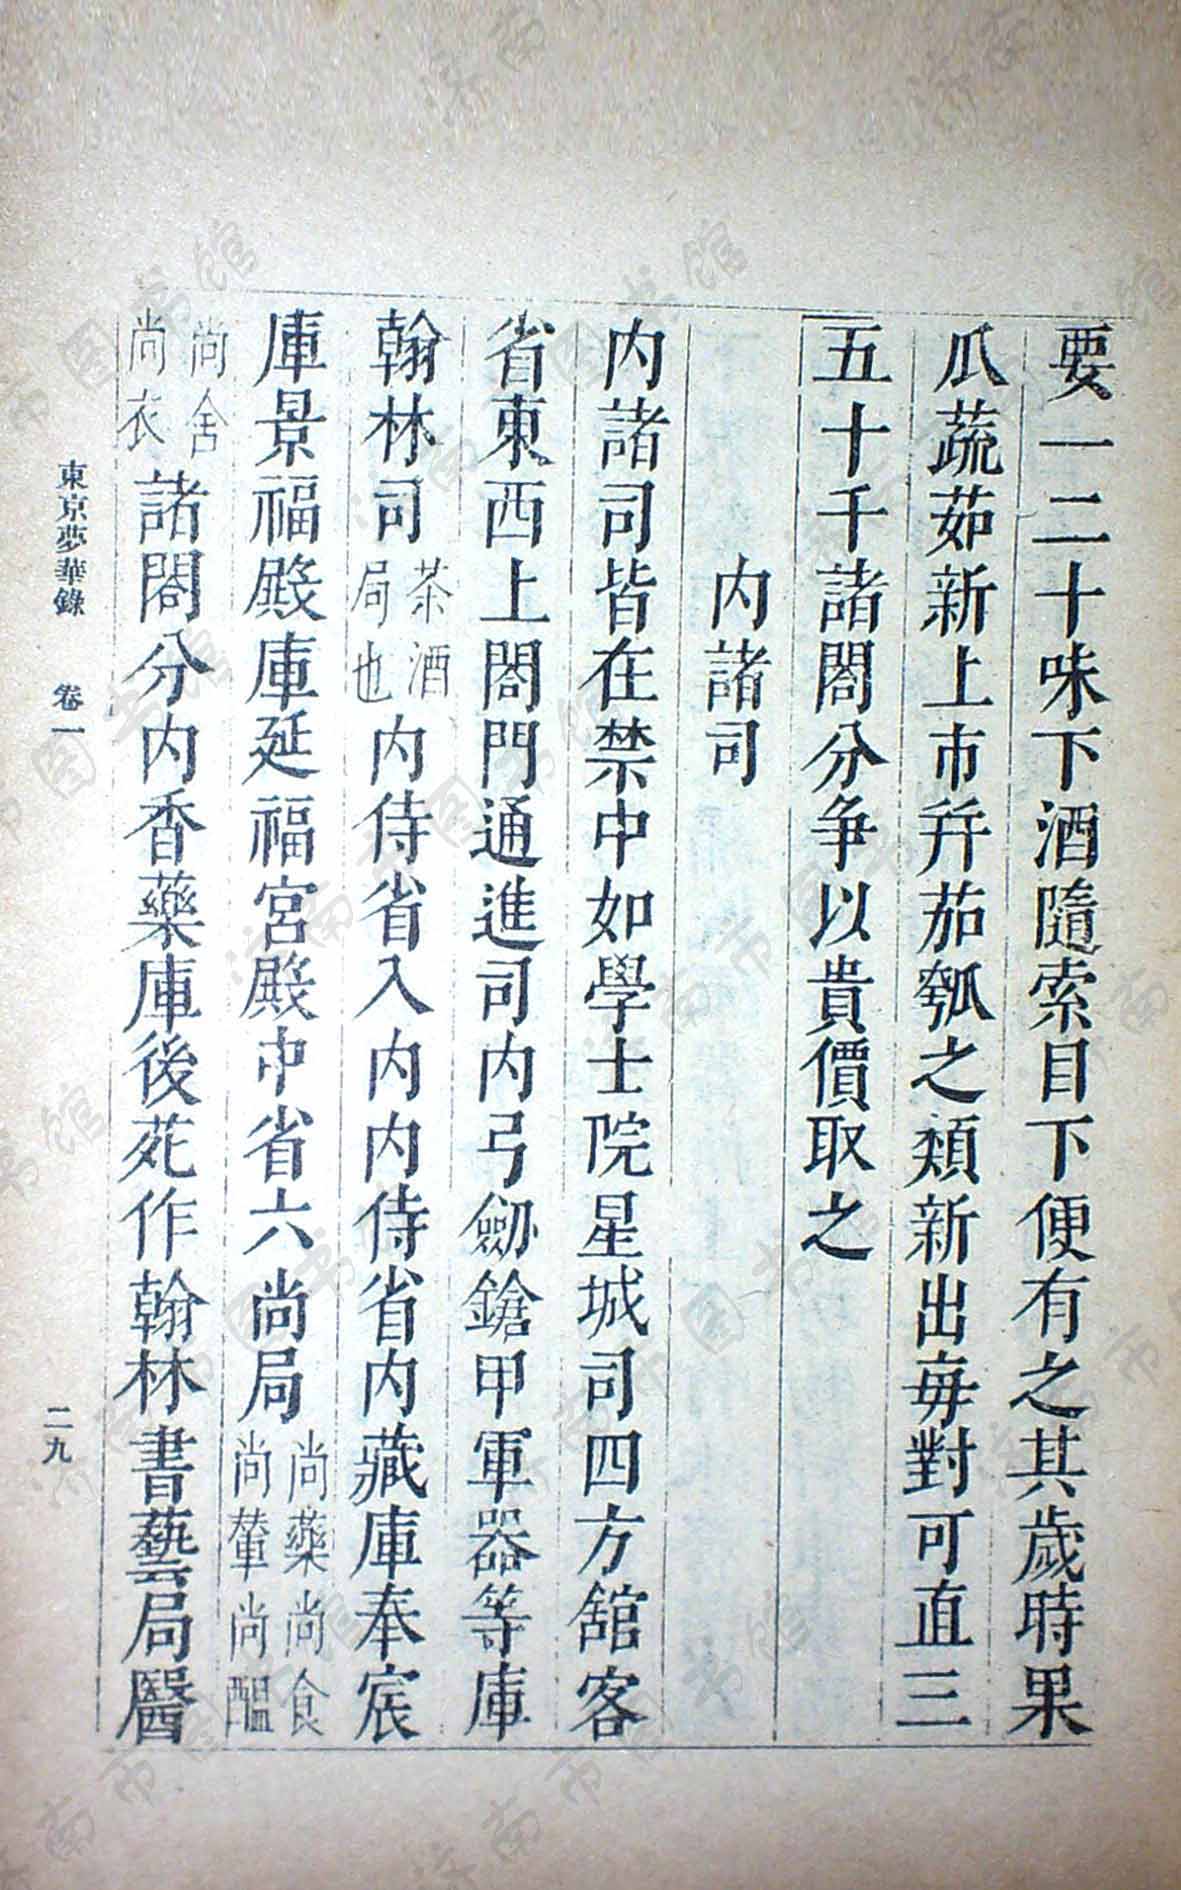 要一二十味下酒隨索目下便有之其歲時果
瓜蔬茹新上市并茄瓠之類新出每對可直三
五十千諸閤分爭以貴價取之
内諸司
内諸司皆在禁中如學士院星城司四方舘客
省東西上閤門通進司内弓劒鎗甲軍器等庫
翰林司茶酒局也内侍省入内内侍省内藏庫奉宸
庫景福殿庫延福宮殿中省六尚局尚藥尚食尚輦尚醖
尚舍尚衣諸閤分内香藥庫後苑作翰林書藝局醫
東京夢華錄 卷一 二九
济南市图书馆